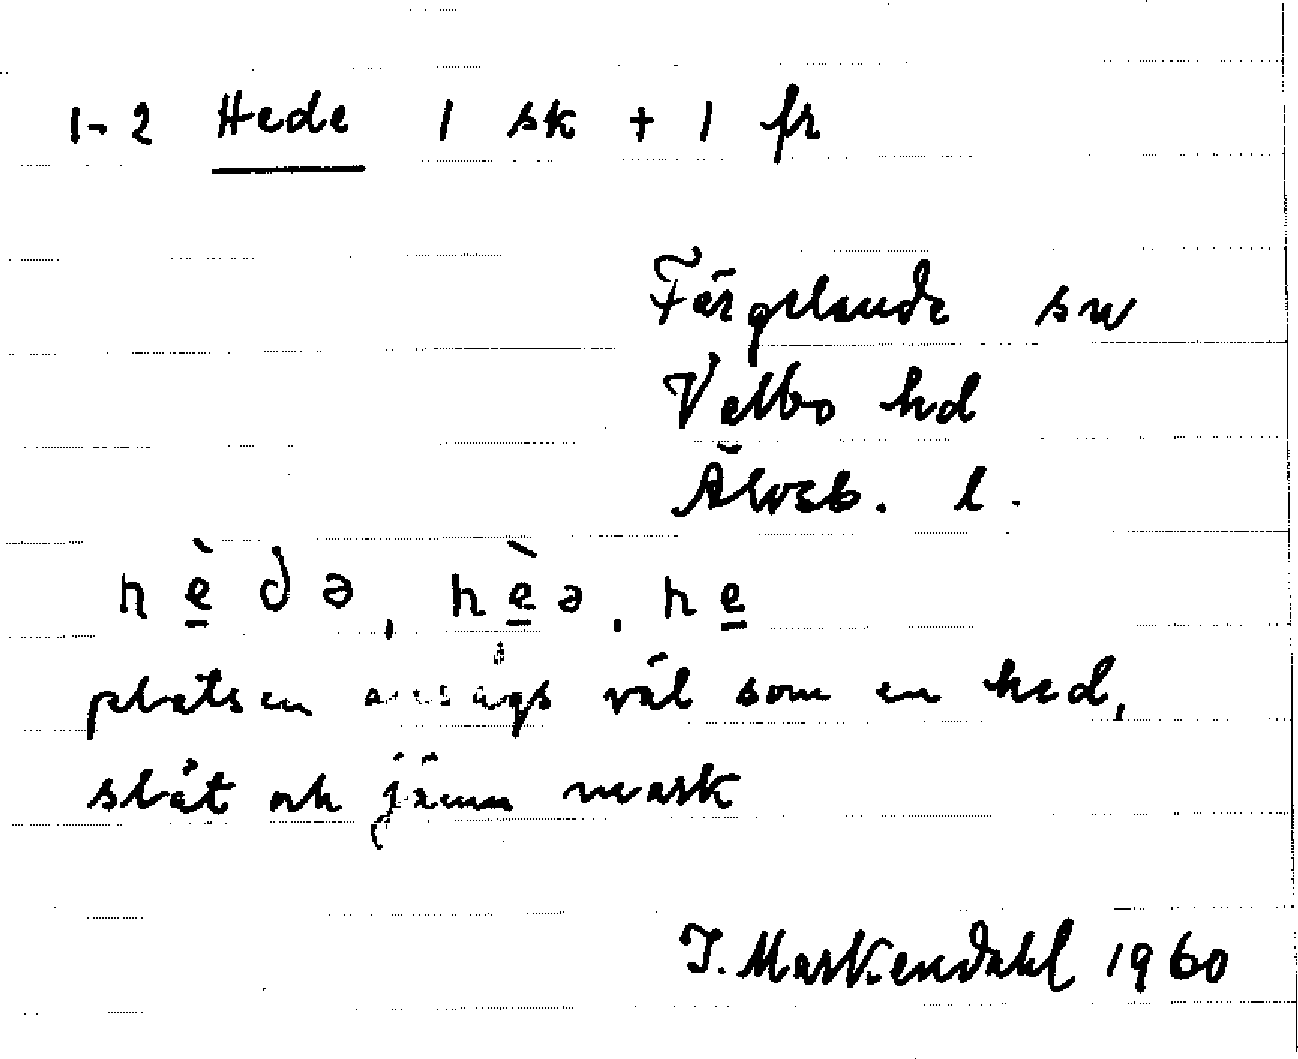 1-2 Hede 1 sk + 1 fr
Färgelanda sn
Valbo hd
Älvsb. l.
hèdə, hèə, he
platsen ansågs väl som en hed,
slät och jämn mark
I. Markendahl 1960